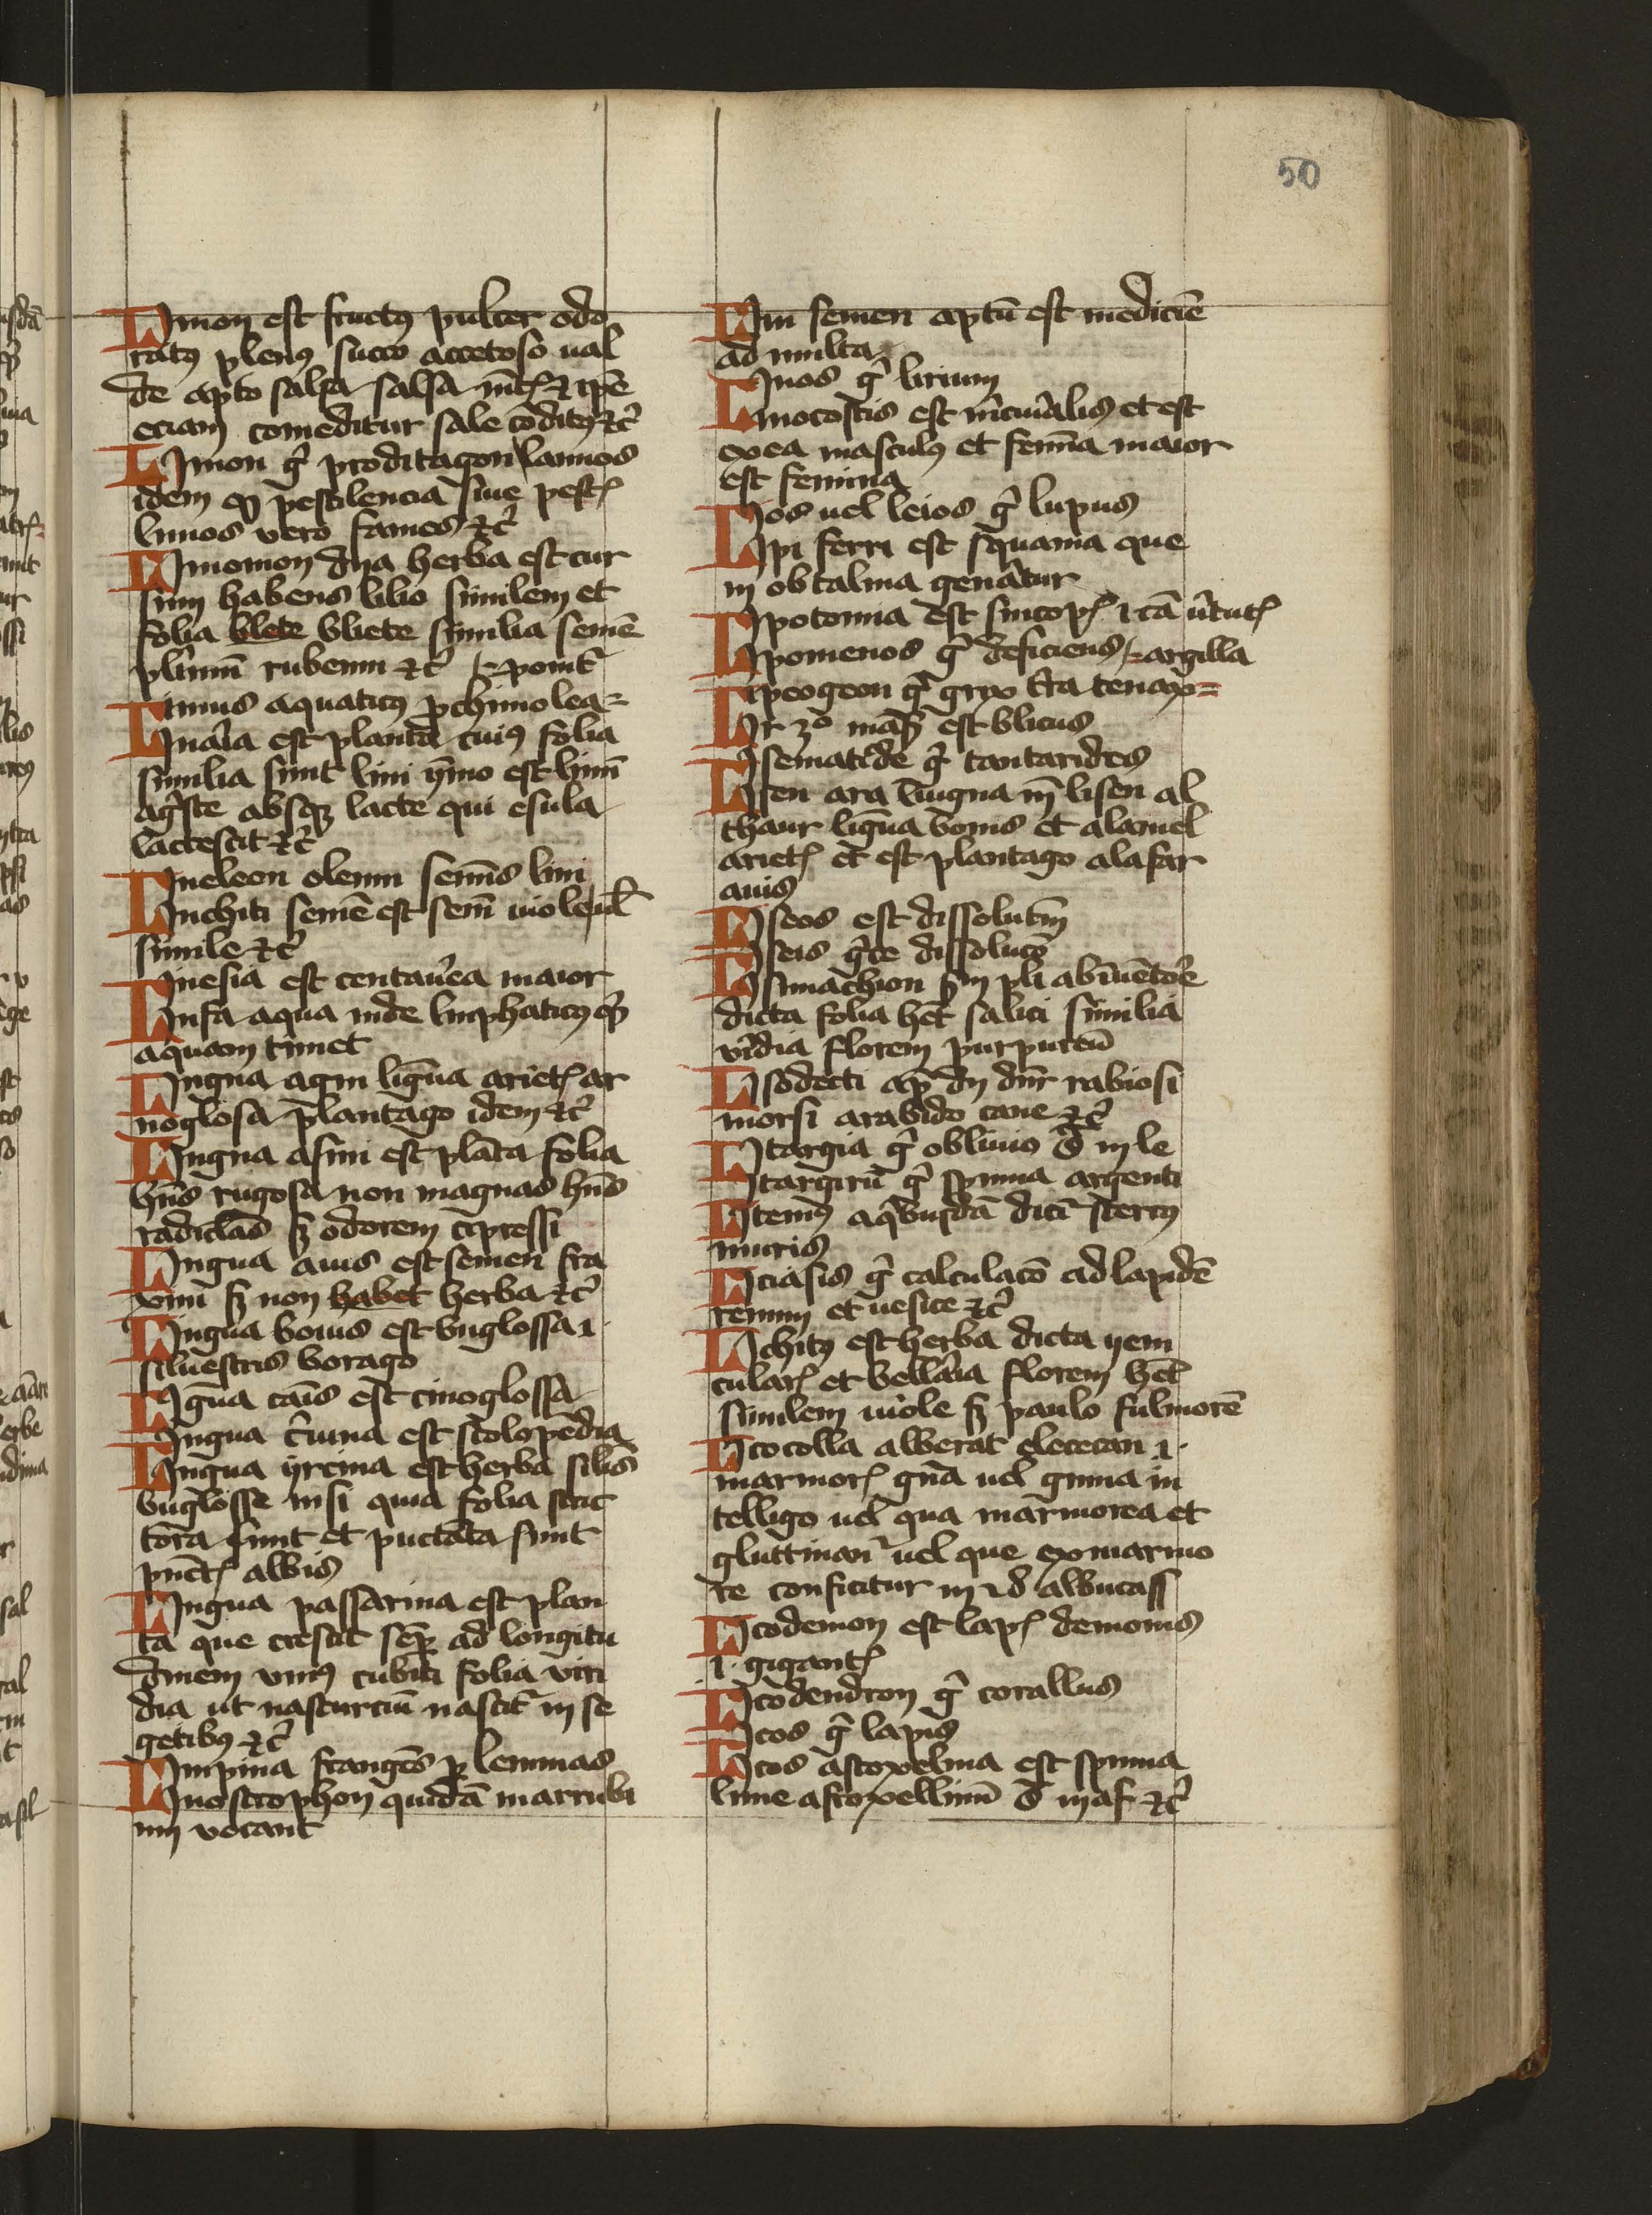 50
Limon est fructꝰ pulcer odo
ratꝰ plenꝰ succo accetoso ual
de apto salsa salsa
eciam comeditur sale cōditꝰ ⁊c̄
Limon gͥ proditagon lannos
idem ꝙ pestilencia siue pestꝭ
limos vero fames ⁊c̄
Limonion dn̄a herba est cur
sum habens lilio similem et
folia blete bliete similia semē
plᵃnum̄ rubeum ⁊c̄ ponit᷑
Limus aquaticꝰ ꝓ chimolea
Linaria est planta cuiꝰ folia
similia sunt lini ymo est linū
agͤste absqꝫ lacte qui esula
lactescit ⁊c̄
Lineleon oleum semīs lini
Linchiti semē est sem̄ uiole
simile ⁊c̄
Linesia est centauͤea maior
Linfa aqua inde limphaticꝰ
aquam timet
Lingua agni lig̅ua arietꝭ ar
noglosa plantago idem ⁊c̄
Lingua asini est plāta folia
hn̄s rugosa non magnas hn̄s
radiclas sꝫ odorem cipressi
Lingua auis est semen fra
xini sꝫ non habet herba ⁊c̄
Lingua bouis est buglossa .i.
siluestris borago
Lig̅ua canīs est cinoglossa
Lingua cͤuina est scolopēdia
Lingua yrcina est herba sil̄is
buglosse nisi quia folia stric
tora sunt et puctata sunt
pūctꝭ albis
Lingua passarina est plan
ta que crescit sep̄ ad longitu
dinem vniꝰ cubiti folia viri
dia ut nasturciū nascit᷑ in se
getibꝰ ⁊c̄
Limpina frangēs ꝑ lemmas
Linostrophon quidā marrubi
um vocant
Lini semen aptū est mediciē
ad multa
Linos gͥ lirium
Linocostis est mͤcuͥalis et est
ex ea masculꝰ et femīa maior
est femina
Lios uel leios gͥ lupus
Lipi ferri est squama que
in obtalmia genāt᷑ur
Lipotomia est sincopꝭ .i. cā uͥtutꝭ
Lipomenos gͥ deficiens argilla
Lipeogeon gͥ grex t͛ra tenax
Lir ꝫᵒ est blicus
Lisematide gͥ cantarides
Lisen ara lingua lisen al
thaur lig̅ua bouis et alamel
arietꝭ et est plantago alasfar
auis
Liseos est dissolutū
Liseis gͤce dissolucō
Lisimachion pli ab inuētore
dicta folia hēt salici similia
vͥidia florem purpureū
Lisodecti dn̄r rabiosi
morsi a rabido cane ⁊c̄
Litargia gͥ obliuio in le
Litargirū gͥ spuma argenti
Litemꝰ a qͥbusdā dicit᷑ stercꝰ
muris
Liciasis gͥ calculacō ad lapidē
renum et uesice ⁊c̄
Lichitꝰ est herba dicta yem
cularꝭ et bellaria florem hēt
similem uiole sꝫ paulo fulmorē
Litocolla alberat elececan .i.
marmorꝭ gn̄a uel gumma in
telligo uel qua marmorea et
gluttinant᷑ uel que ex marmo
re conficitur albucass
Litodemon est lapꝭ demonis
.i. gigantꝭ
Litodendron gͥ corallus
Litos gͥ lapis
Litos astoxelma est spuma
lune astoxellinū ⁊c̄